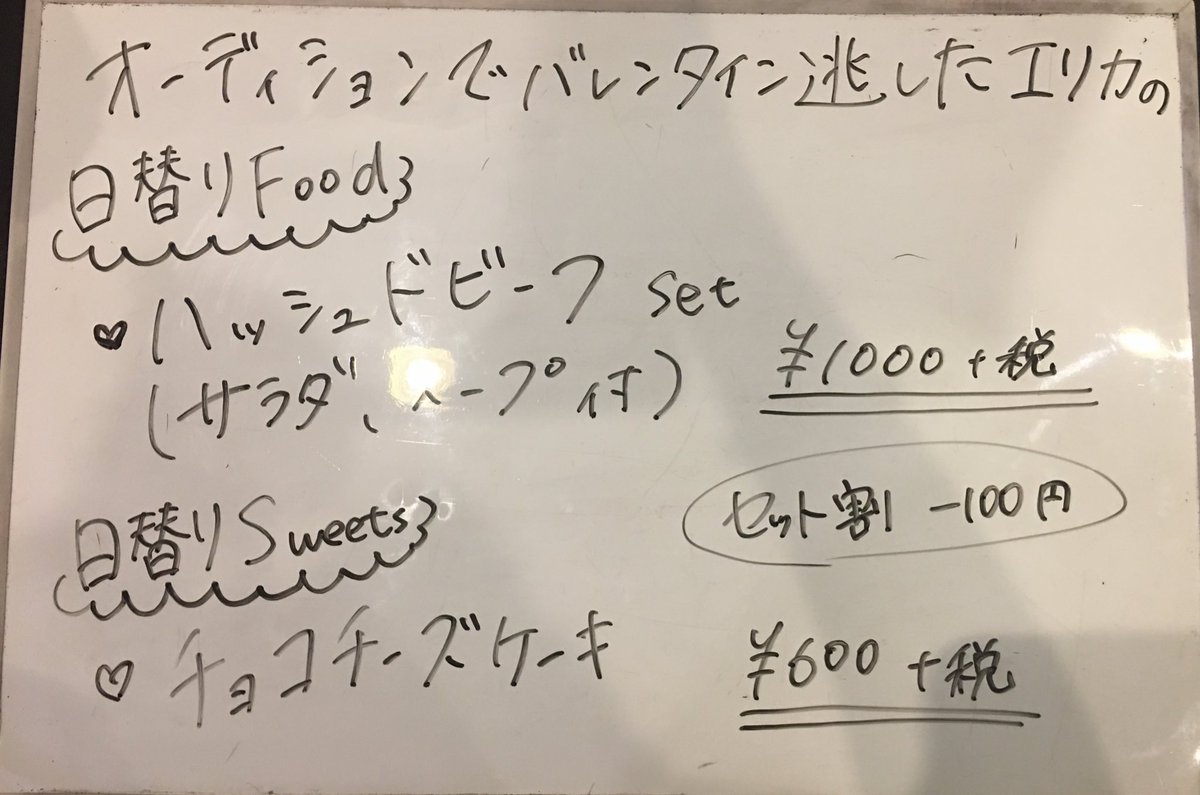 オーディションでバレンタイン逃したエリカの
日替りFood
♥ハッシュドビーフ set
(サラダ、スープ付)
¥1000+税
セット割 -100円
日替りSweets
♡チョコチーズケーキ
¥600+税